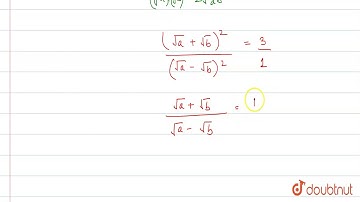 (√a + √b)² / (√a - √b)² = 3 / 1
√a + √b / √a - √b = 1
doubtnut